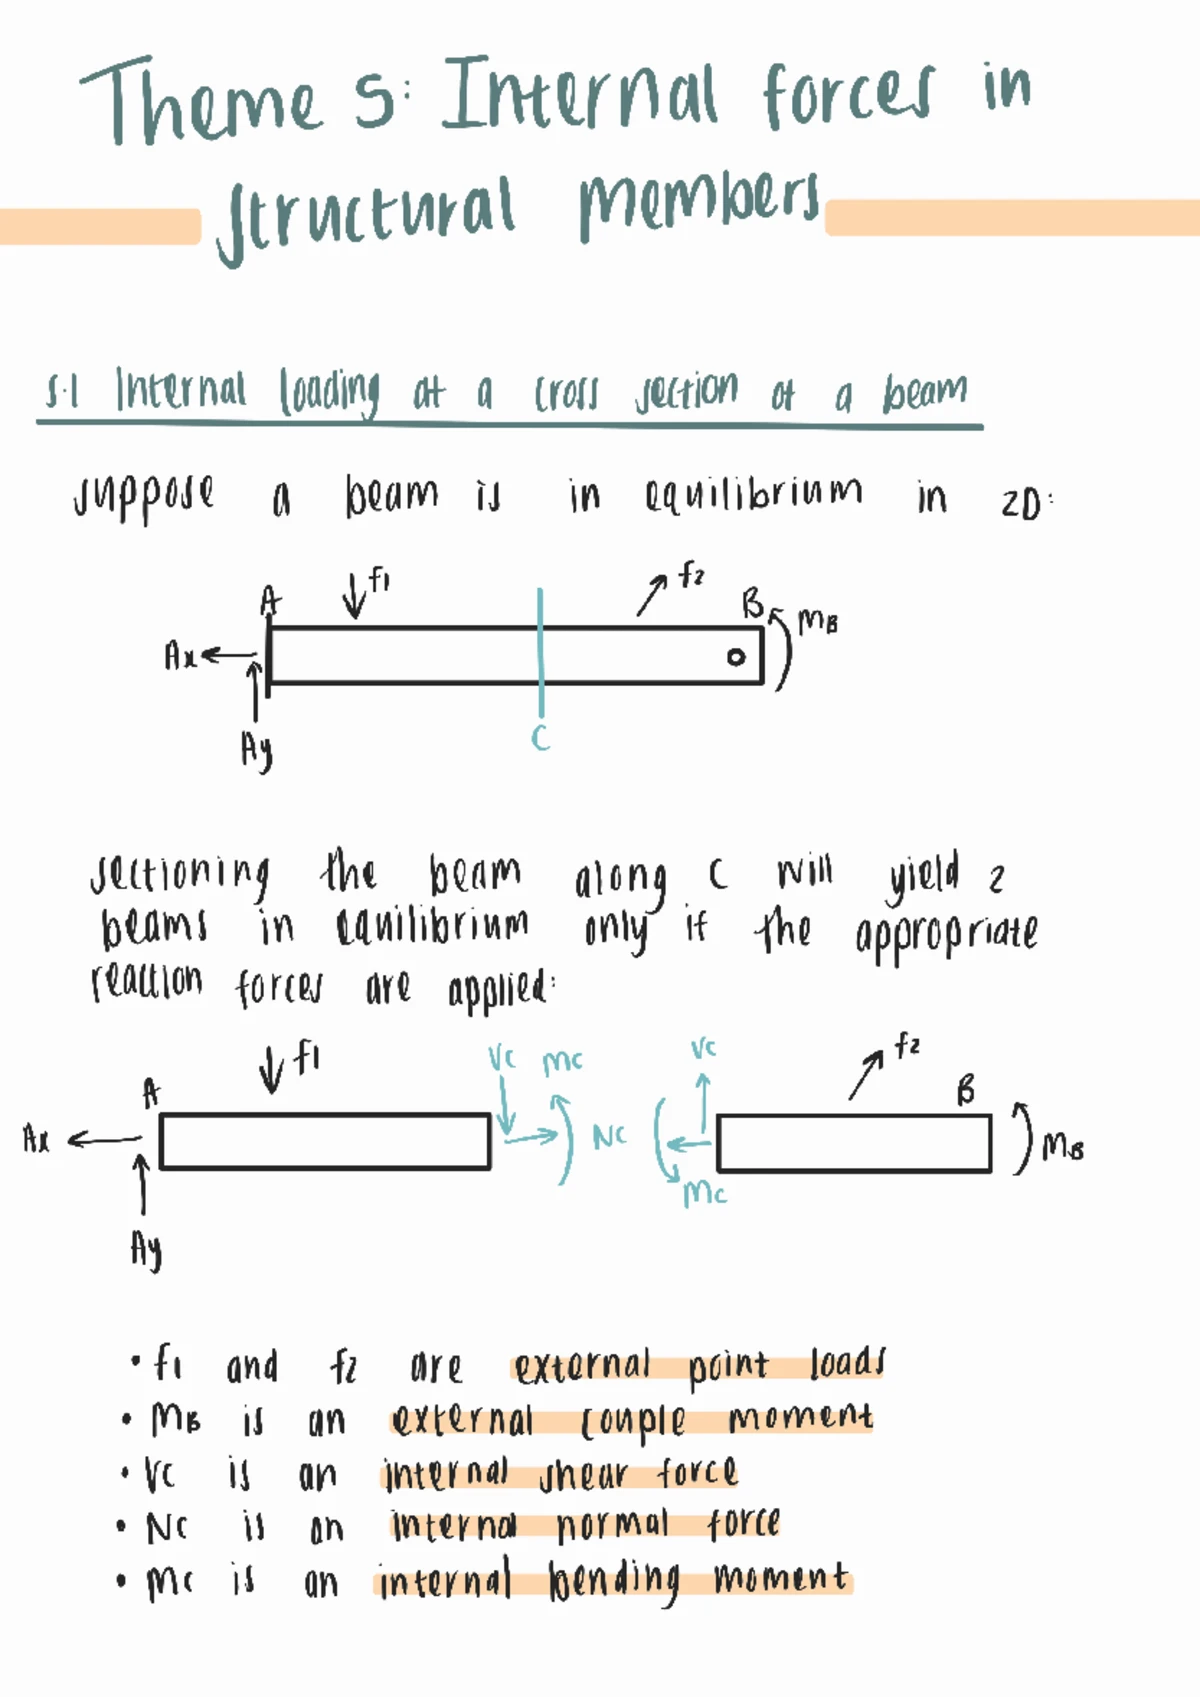 Theme 5: Internal forces in
structural members
5.1 Internal loading at a cross section of a beam
suppose a beam is in equilibrium in 2D:
A f1 f2 B MB
Ax
Ay C
sectioning the beam along C will yield 2
beams in equilibrium only if the appropriate
reaction forces are applied:
A f1 Vc Mc Vc f2 B
Ax Nc Mc MB
Ay
• f1 and f2 are external point loads
• MB is an external couple moment
• Vc is an internal shear force
• Nc is an internal normal force
• Mc is an internal bending moment